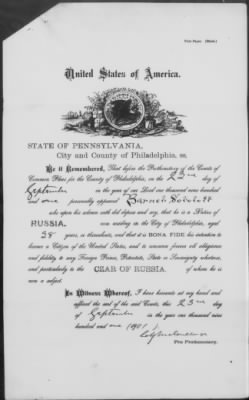 United States of America.
STATE OF PENNSYLVANIA,
City and County of Philadelphia, ss.
Be it Remembered, That before the Prothonotary of the Courts of
Common Pleas for the County of Philadelphia, on the 23rd day of
September in the year of our Lord one thousand nine hundred
and one personally appeared Barnet
who upon his solemn oath did depose and say, that he is a Native of
RUSSIA, now residing in the City of Philadelphia, aged
28 years, or thereabouts, and that it is BONA FIDE his intention to
become a Citizen of the United States, and to renounce forever all allegiance
and fidelity to any Foreign Prince, Potentate, State or Sovereignty whatever,
and particularly to the CZAR OF RUSSIA. of whom he is
now a subject.
In Witness Whereof, I have hereunto set my hand and
affixed the seal of the said Courts, this 23rd day
of September in the year one thousand nine
hundred and one (1901)
Pro Prothonotary.